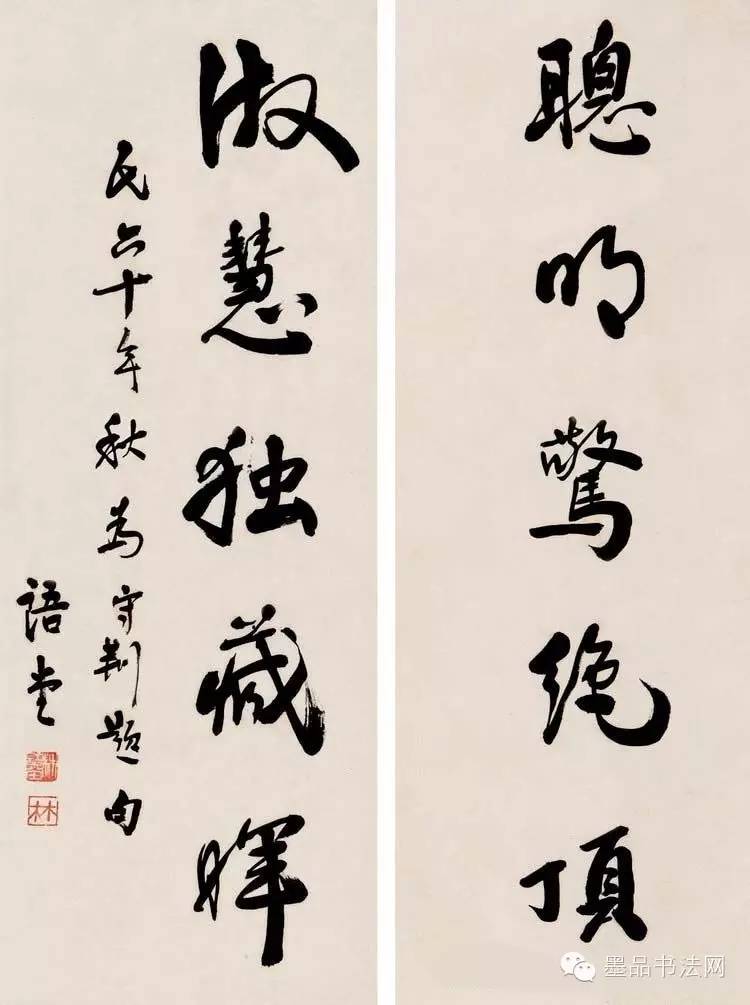 聰明驚絶頂
淑慧独藏暉
民六十年秋為守荆題句
語堂
林
墨品书法网